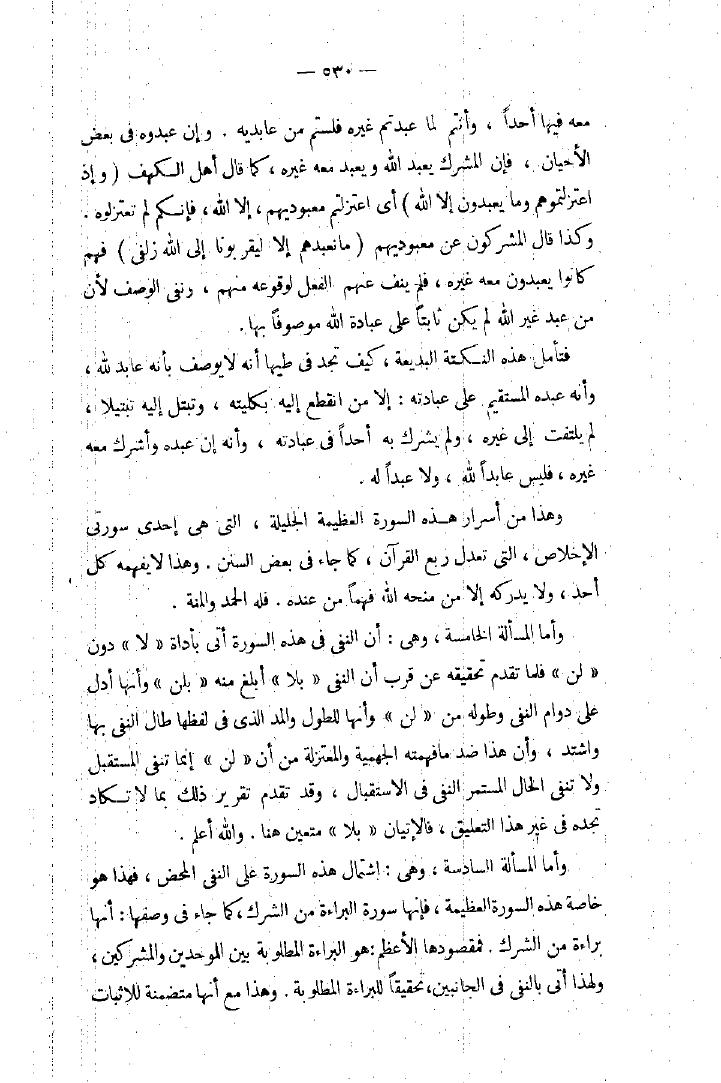 — ٥٣٠ —
معه فيها أحداً ، وأنتم لما عبدتم غيره فلستم من عابديه . وإن عبدوه فى بعض
الأحيان ، فإن المشرك يعبد الله ويعبد معه غيره ، كما قال أهل الكهف ( وإذ
اعتزلتموهم وما يعبدون إلا الله ) أى اعتزلتم معبوديهم ، إلا الله ، فإنكم لم تعتزلوه .
وكذا قال المشركون عن معبوديهم ( مانعبدهم إلا ليقربونا إلى الله زلفى ) فهم
كانوا يعبدون معه غيره ، فلم ينف عنهم الفعل لوقوعه منهم ، رننى الوصف لأن
من عبد غير الله لم يكن ثابتاً على عبادة الله موصوفاً بها .
فتأمل هذه النكتة البديعة ، كيف تجد فى طيها أنه لايوصف بأنه عابد لله ،
وأنه عبده المستقيم على عبادته : إلا من انقطع إليه بكليته ، وتبتل إليه تبتيلا ،
لم يلتفت إلى غيره ، ولم يشرك به أحداً فى عبادته ، وأنه إن عبده وأشرك معه
غيره ، فليس عابداً لله ، ولا عبداً له .
وهذا من أسرار هذه السورة العظيمة الجليلة ، التى هى إحدى سورتى
الإخلاص ، التى تعدل ربع القرآن ، كما جاء فى بعض السنن . وهذا لايفهمه كل
أحد ، ولا يدركه إلا من منحه الله فهماً من عنده . فله الحمد والمنة .
وأما المسألة الخامسة ، وهى : أن النفى فى هذه السورة أتى بأداة « لا » دون
« لن » فلما تقدم تحقيقه عن قرب أن النفى « بلا » أبلغ منه « بلن » وأنها أدل
على دوام النفى وطوله من « لن » وأنها للطول والمد الذى فى لفظها طال النفى بها
واشتد ، وأن هذا ضد مافهمته الجهمية والمعتزلة من أن « لن » إنما تنفى المستقبل
ولا تنفى الحال المستمر النفى فى الاستقبال ، وقد تقدم تقرير ذلك بما لا تكاد
تجده فى غير هذا التعليق ، فالإتيان « بلا » متعين هنا . والله أعلم .
وأما المسألة السادسة ، وهى : اشتمال هذه السورة على النفى المحض ، فهذا هو
خاصة هذه السورة العظيمة ، فإنها سورة البراءة من الشرك ، كما جاء فى وصفها : أنها
براءة من الشرك . فمقصودها الأعظم : هو البراءة المطلوبة بين الموحدين والمشركين ،
ولهذا أتى بالنفى فى الجانبين ، تحقيقاً للبراءة المطلوبة . وهذا مع أنها متضمنة للاثبات